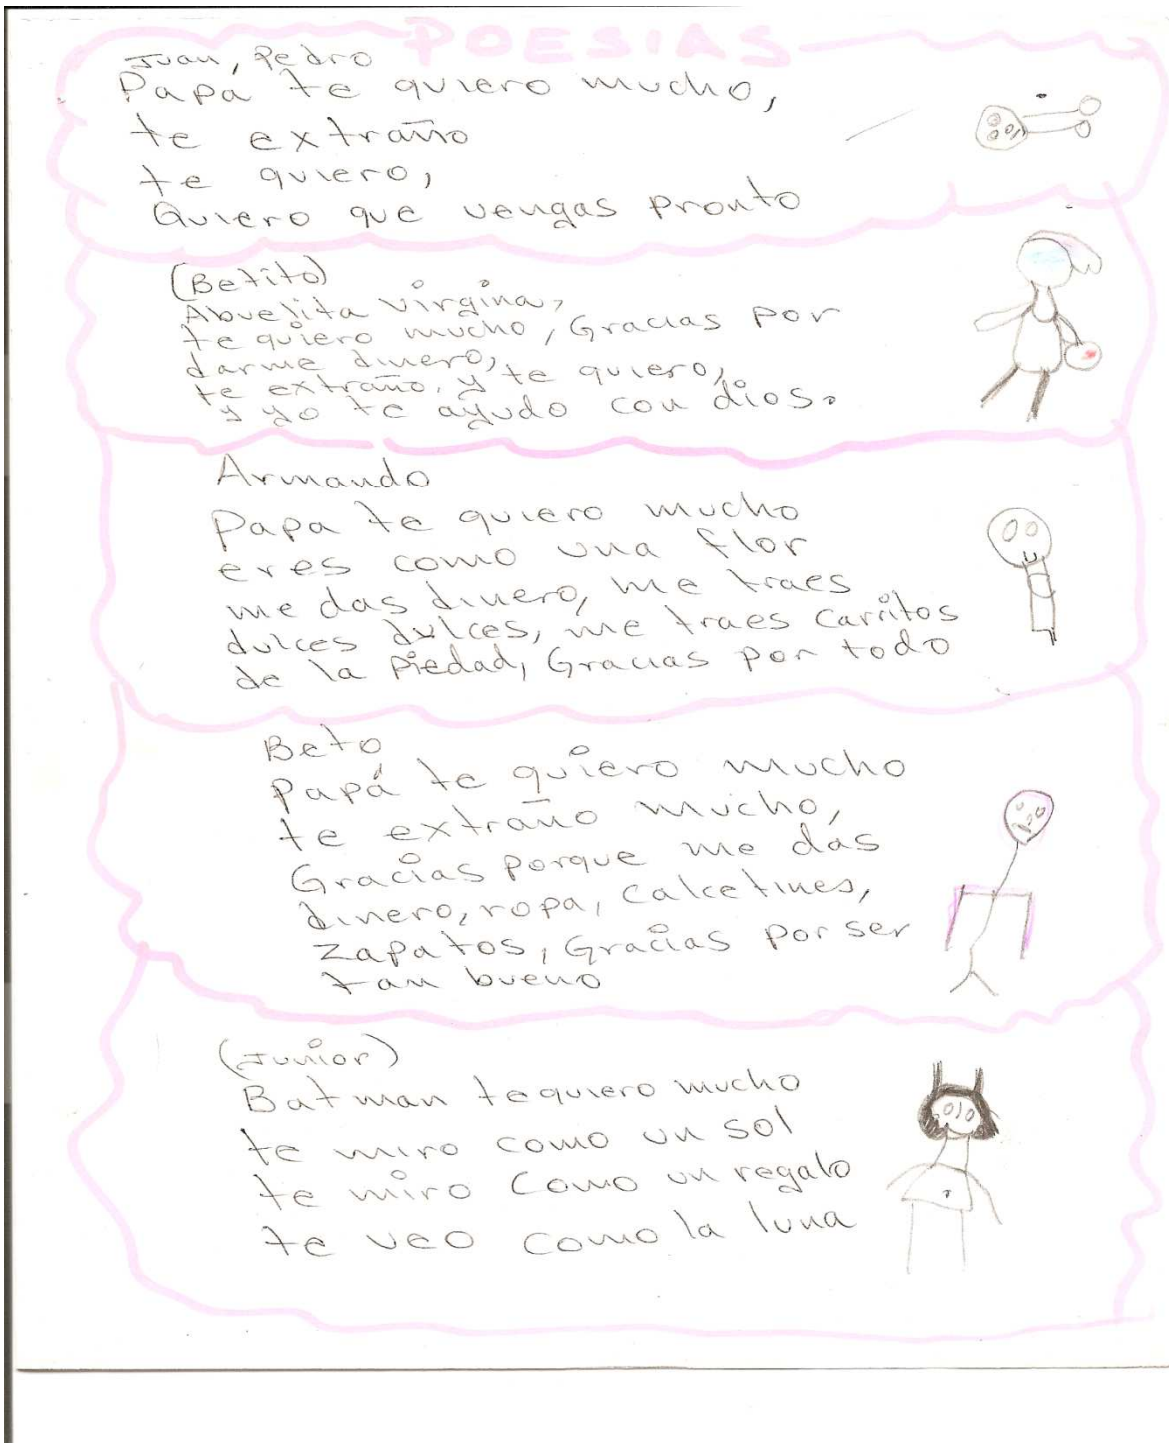 POESIAS
Juan, Pedro
Papá te quiero mucho,
te extraño
te quiero,
Quiero que vengas pronto
(Betito)
Abuelita virgina,
te quiero mucho, Gracias por
darme dinero,
te extraño, y te quiero,
y yo te ayudo con dios.
Armando
Papa te quiero mucho
eres como una flor
me das dinero, me traes
dulces dulces, me traes carritos
de la Piedad, Gracias por todo
Beto
Papá te quiero mucho
te extraño mucho,
Gracias porque me das
dinero, ropa, calcetines,
zapatos, Gracias por ser
tan bueno
(Junior)
Batman te quiero mucho
te miro como un sol
te miro como un regalo
te veo como la luna